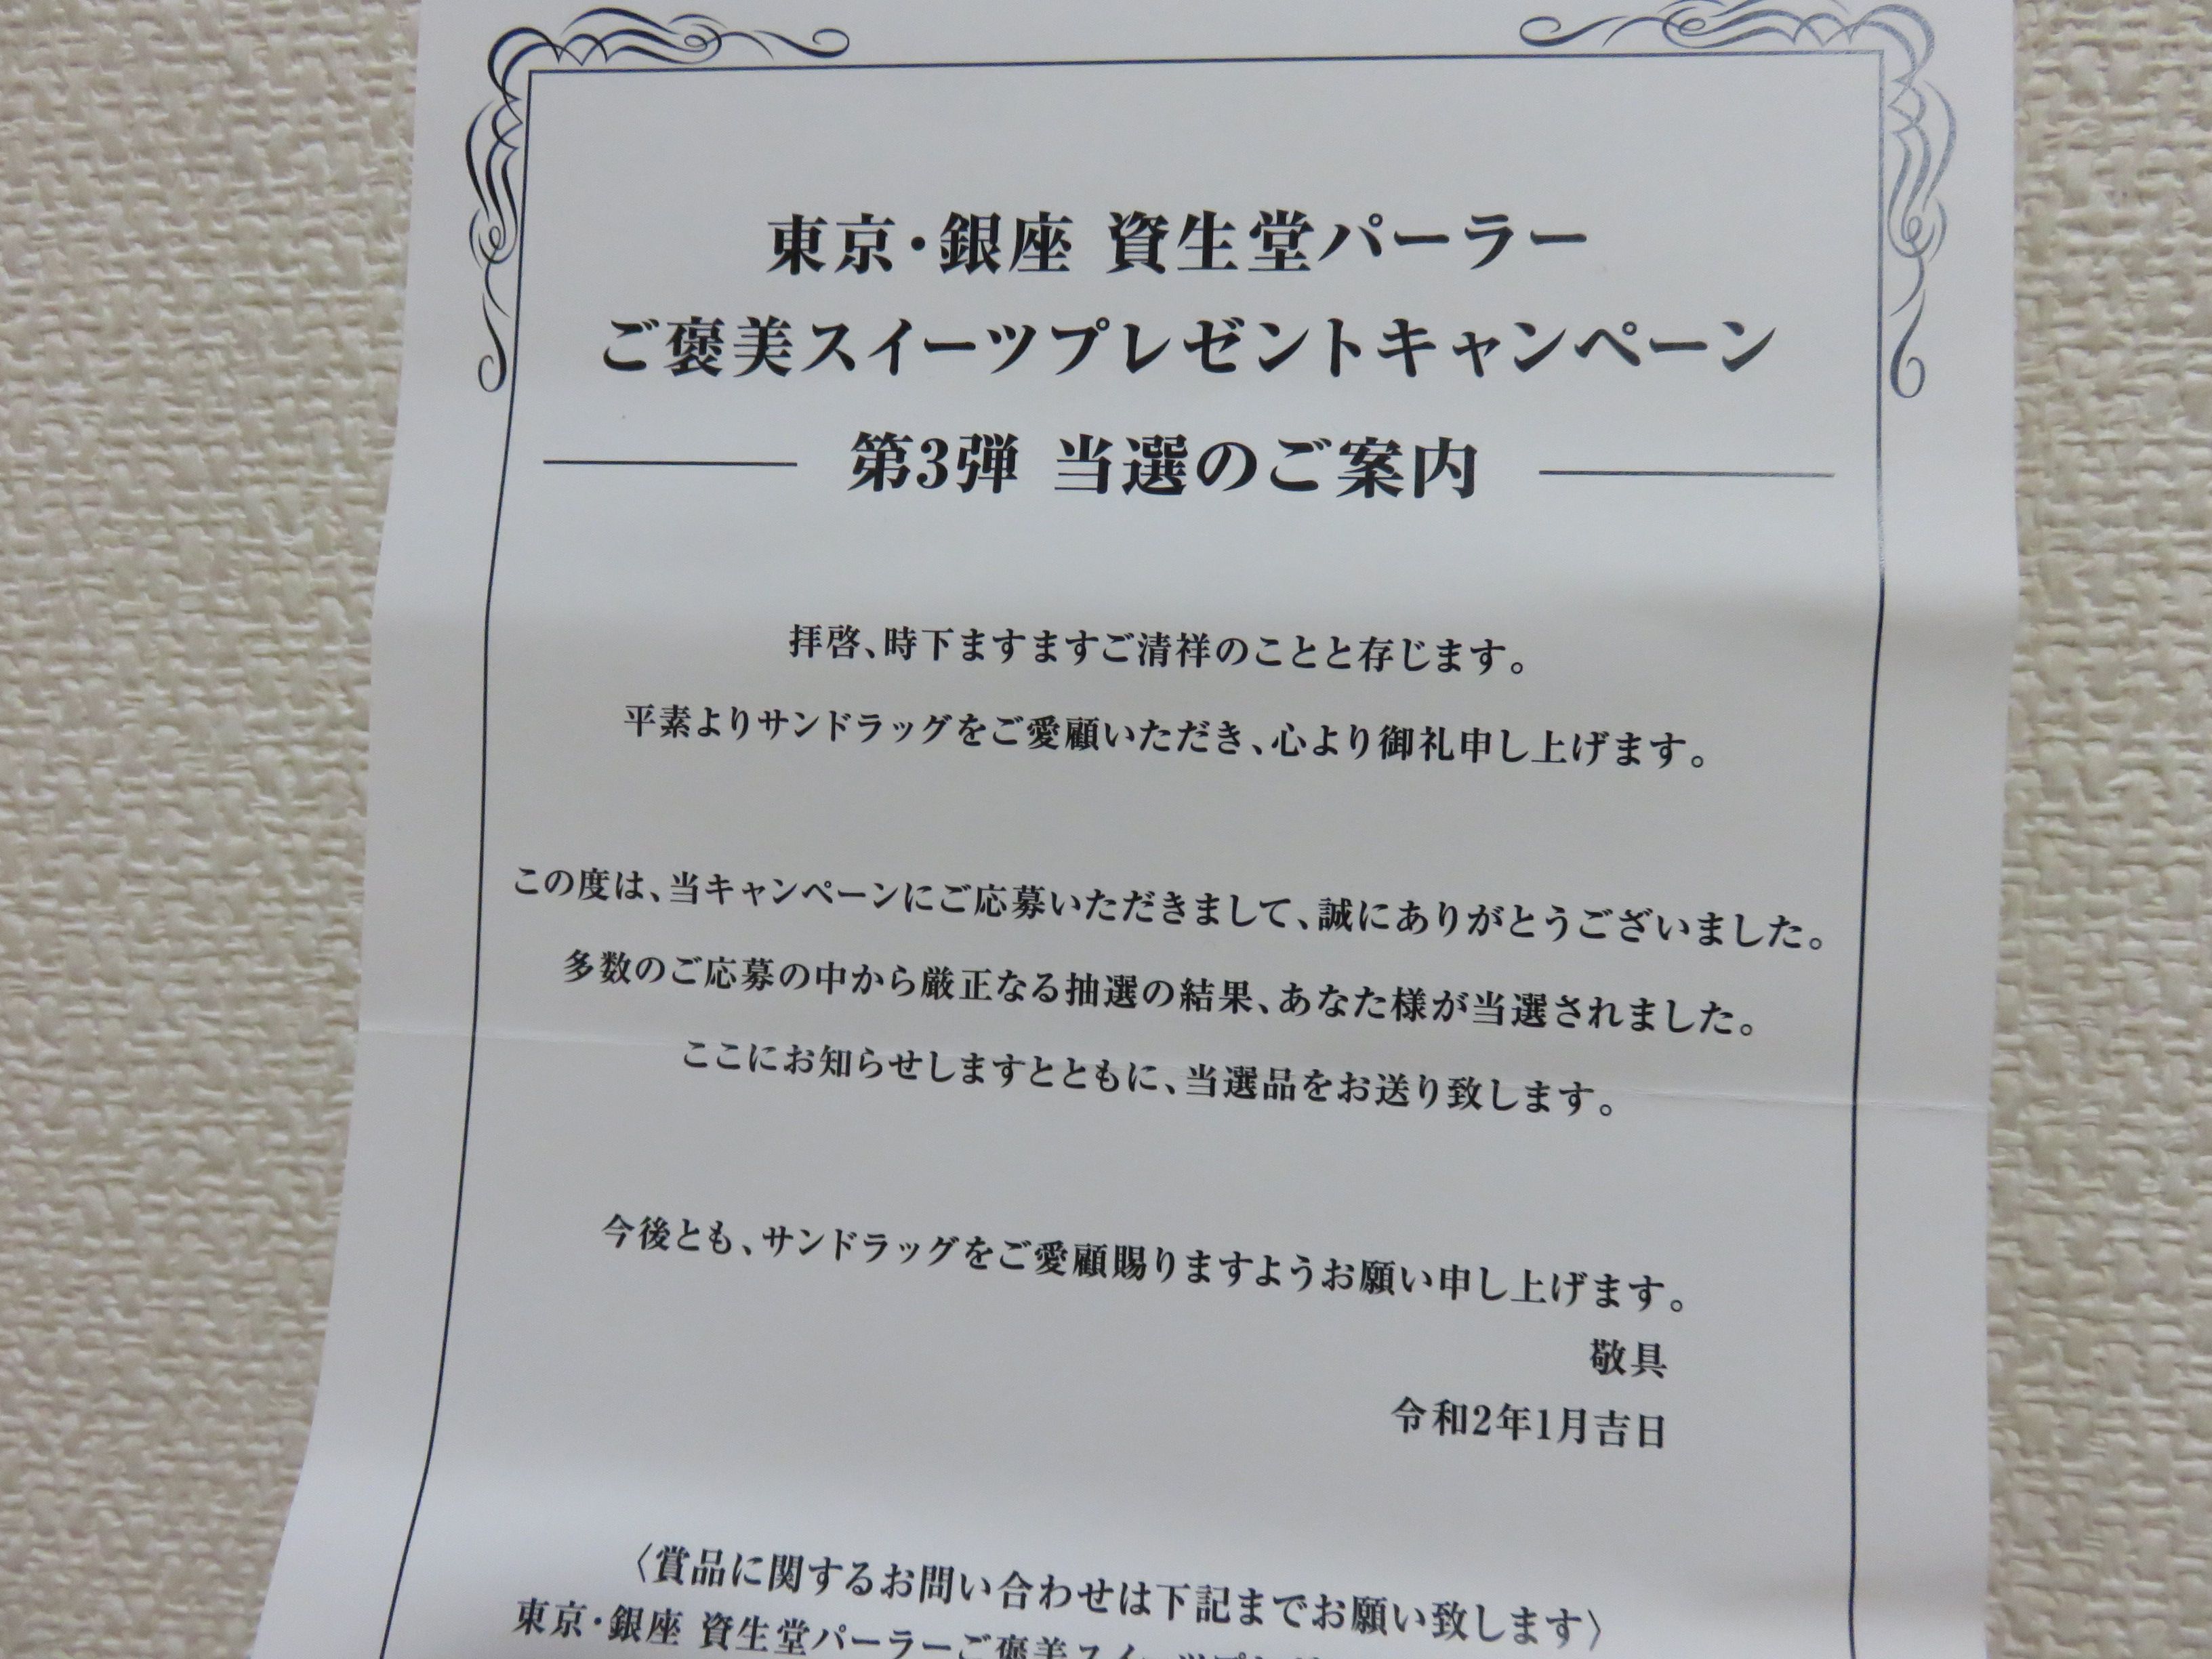 東京・銀座 資生堂パーラー
ご褒美スイーツプレゼントキャンペーン
第3弾 当選のご案内
拝啓、時下ますますご清祥のことと存じます。
平素よりサンドラッグをご愛顧いただき、心より御礼申し上げます。
この度は、当キャンペーンにご応募いただきまして、誠にありがとうございました。
多数のご応募の中から厳正なる抽選の結果、あなた様が当選されました。
ここにお知らせしますとともに、当選品をお送り致します。
今後とも、サンドラッグをご愛顧賜りますようお願い申し上げます。
敬具
令和2年1月吉日
〈賞品に関するお問い合わせは下記までお願い致します〉
東京・銀座 資生堂パーラーご褒美スイーツ